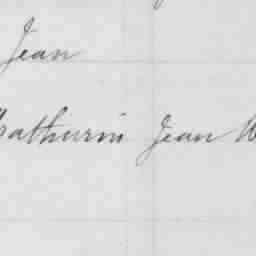 Jean
Mathurin Jean